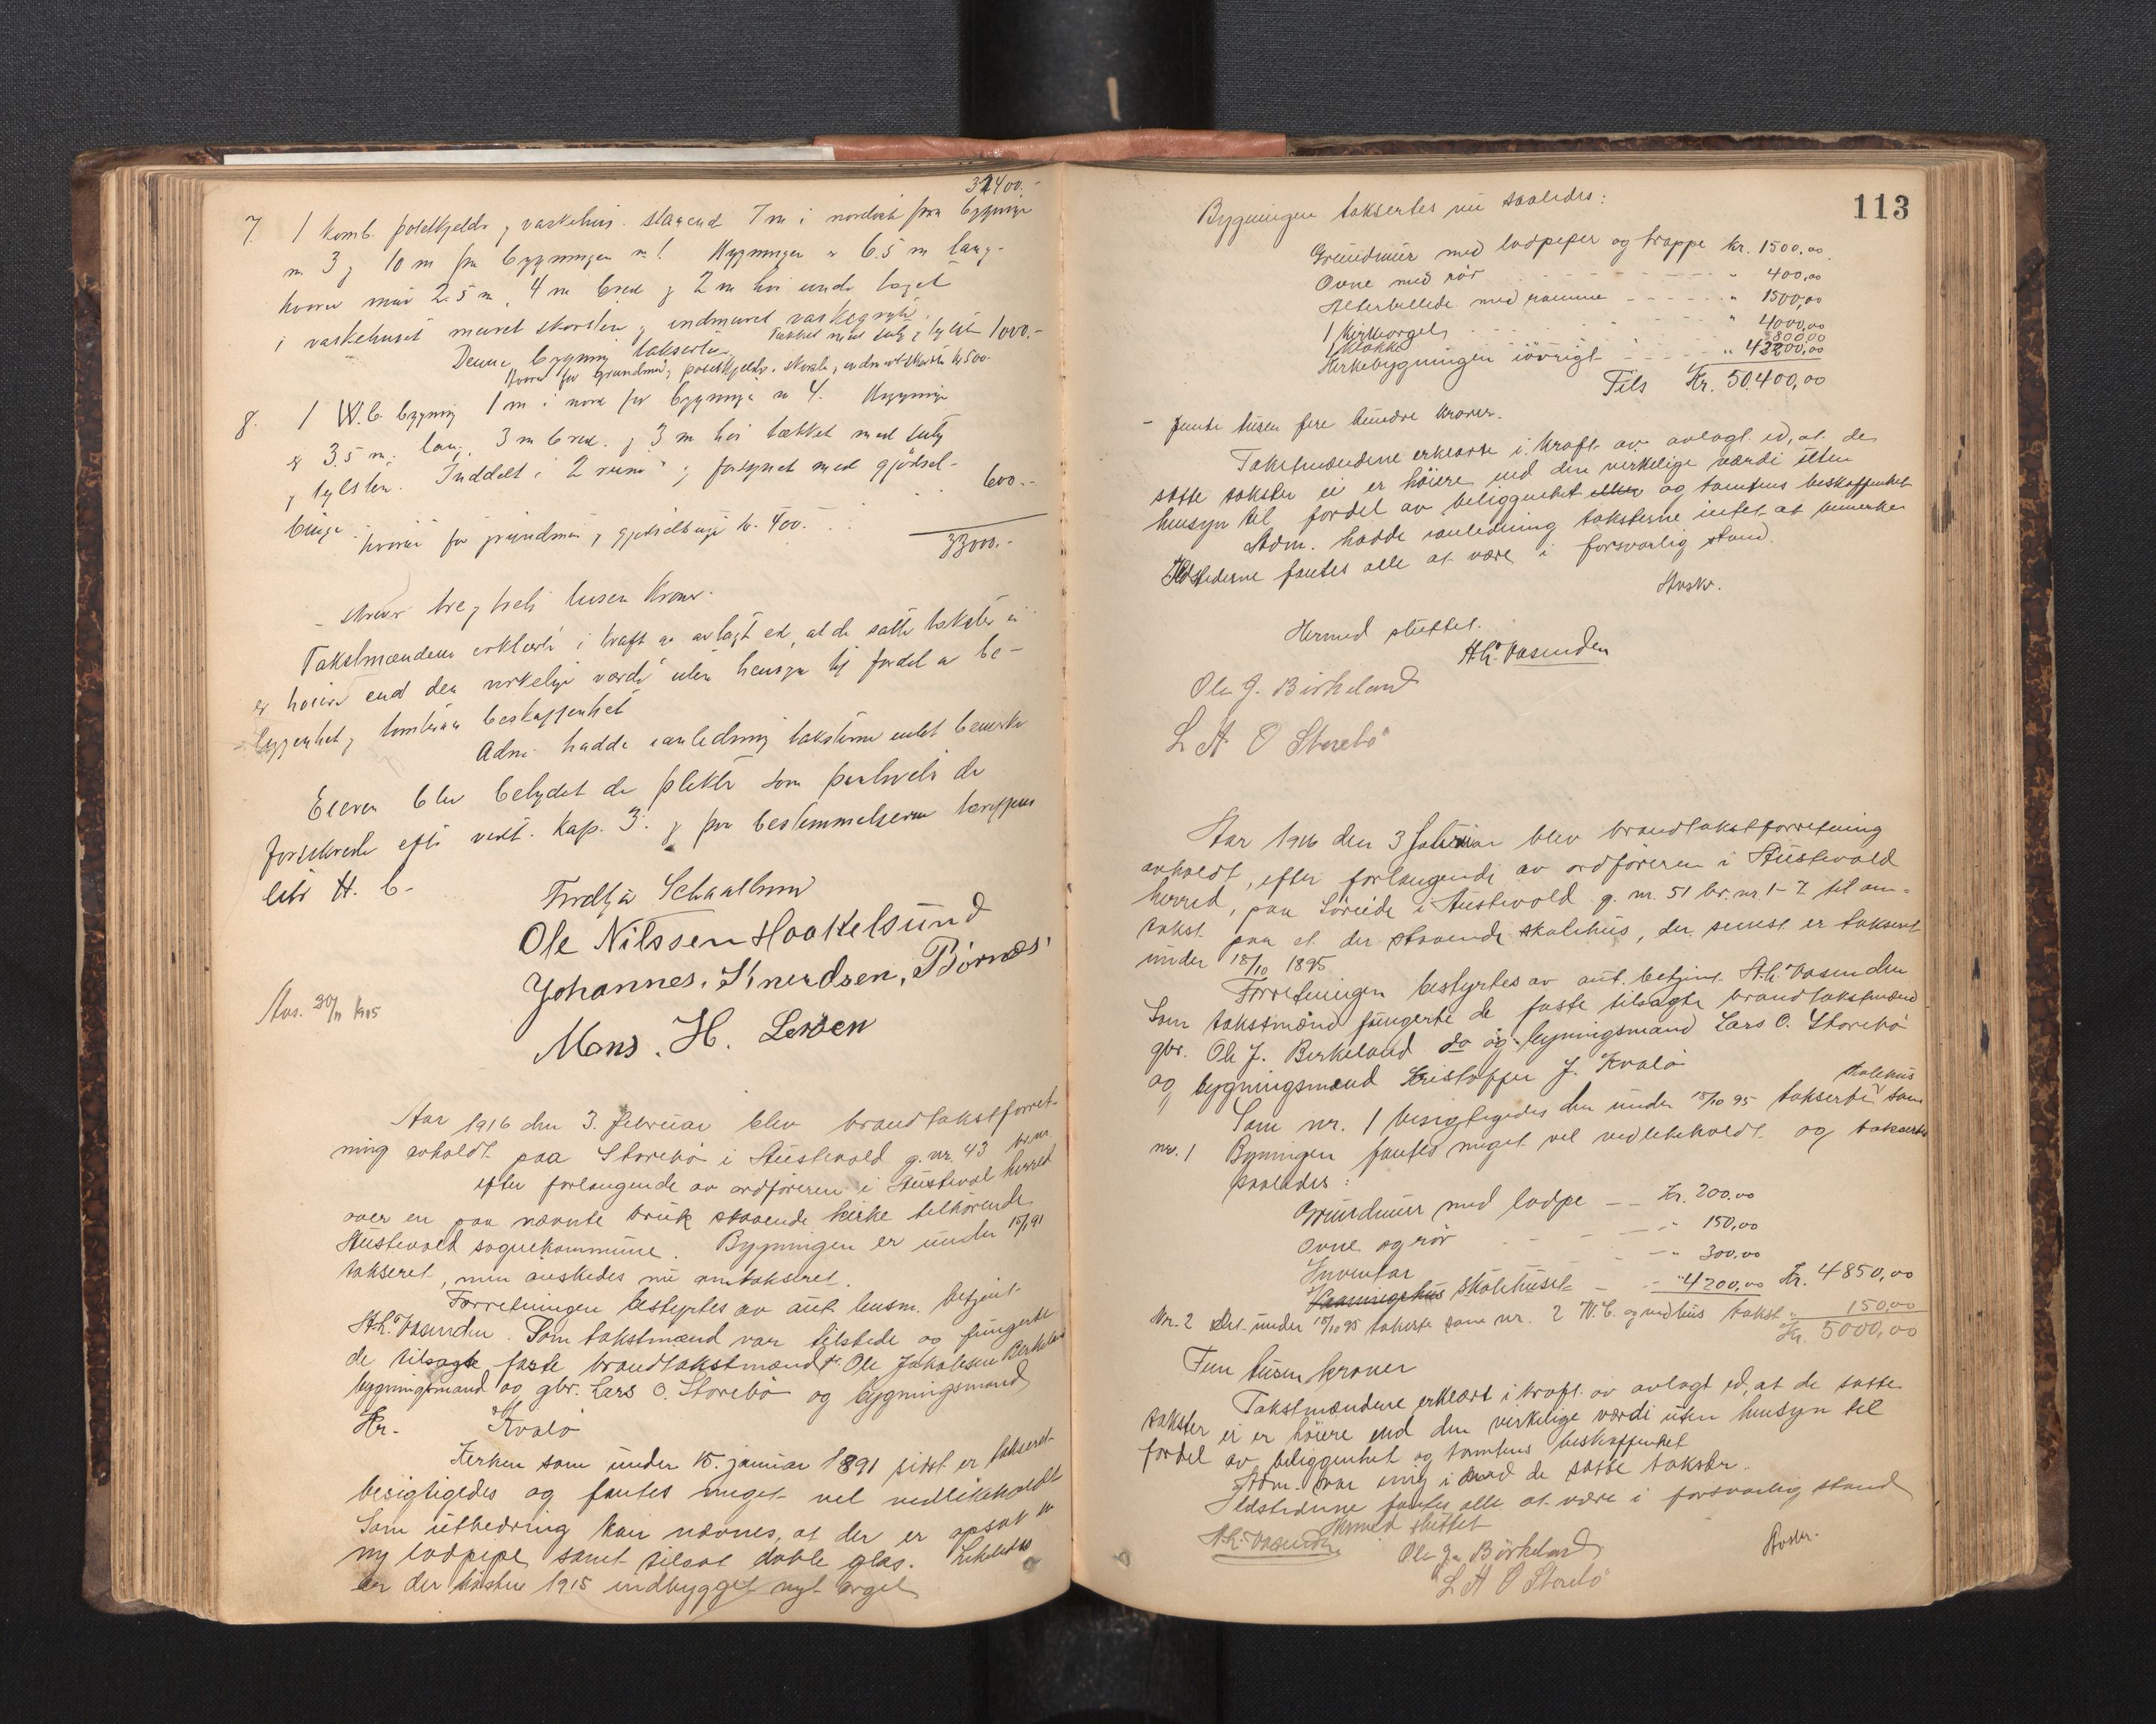 31400.-
7. 1 komb. potetkjelder, vaskehus. staaende 7 m i nordost fra bygning
nr 3 og 10 m fra bygningen nr 1. Bygningen er 6.5 m lang-
hvorav mur 2.5 m, 4 m bred og 2 m høi under taget
i vaskehuset muret skorsten og indmuret vaskegryte.
Denne bygning taksertes tækket med sutak, teglsten 1000.-
Hvorav for grundmur, potetkjelder, skorsten, indmuret kr. 500-
8. 1 W.C. bygning 1 m i nord for bygning nr 4. Bygningen
er 3.5 m. lang, 3 m bred. og 3 m høi tækket med sutak
og teglsten. Inddelt i 2 rum og forsynet med gjødsel-
binge. 600.-
hvorav for grundmur og gjødselbinge kr. 400.
33000.-
- skriver tre og treti tusen Kroner.
Takstmændene erklærte i kraft av avlagt ed, at de satte takster ei
er høiere end den virkelige værdi uten hensyn til fordel av be-
liggenhet og tomtens beskaffenhet
Adm. hadde i anledning taksterne intet bemerke
Eieren blev betydet de plikter som paahviler de
forsikrede efter vedt. Kap. 3. og paa bestemmelserne tariffens
litr H. b-
Fredtjar Schaathun
Ole Nilssen Haakelsund
Johannes. Knudsen, Børnæs
Mons. H. Lerøen
Avs. 30/11 1915
Aar 1916 den 3. februar blev brandtakstforret-
ning avholdt paa Storebø i Austevold g. nr. 43 br.nr.
efter forlangende av ordføreren i Austevol herred
over en paa nævnte bruk staaende kirke tilhørende
Austevold sognekommune. Bygningen er under 15/1 91
takseret, men ønskedes nu omtakseret.
Forretningen bestyrtes av aut. lensm. betjent
A.K. Vasenden. Som takstmænd var tilstede og fungerte
de tilsagte faste brandtakstmænd Ole Jakobsen Berkeland
bygningsmand og gbr. Lars O. Storebø og bygningsmand
Kr. Kvalø
Kirken som under 15. januar 1891 sidst er takseret
besigtigedes og fantes meget vel vedlikeholdt
Som utbedring kan nævnes, at der er opsat en
ny lodpipe samt tilsat doble glas. Likeledes
er der høsten 1915 indbygget nyt orgel
113
Bygningen taksertes nu saaledes:
Grundmur med lodpiper og trappe kr. 1500,00
Ovne med rør " 400,00
Alterbillede med ramme " 1500,00
1 Kirkeorgel " 4000,00
1 Klokke 800,00
Kirkebygningen iøvrigt " 42200,00
Tils Kr. 50,400,00
- femti tusen fire hundre kroner.
Takstmændene erklærte i kraft av avlagt ed, at de
satte takster ei er høiere end den virkelige værdi uten
hensyn til fordel av beliggenhet eller og tomtens beskaffenhet
Adm. hadde i anledning taksterne intet at bemerke
Ildstederne fantes alle at være i forsvarlig stand.
Avskr.
Hermed sluttet.
A.K. Vasenden
Ole J. Birkeland
L A O Storebø
Aar 1916 den 3 februar blev brandtakstforretning
avholdt, efter forlangende av ordføreren i Austevold
herred, paa Søreide i Austevold g. nr. 51 br. nr. 1-7 til om-
takst paa et der staaende skolehus, der senest er takseret
under 18/10 1895.
Forretningen bestyrtes av aut. betjent A.K. Vasenden
Som takstmænd fungerte de faste tilsagte brandtakstmænd
gbr. Ole J. Berkeland do og bygningsmand Lars O. Storebø
og bygningsmand Kristoffer J. Kvalø
Som nr. 1 besigtigedes den under 18/10 95 takserte skolehus som
nr. 1 Bygningen fantes meget vel vedlikeholdt og taksertes
saaledes:
Grundmur med lodpe Kr. 200,00
Ovne og rør " 150,00
Inventar " 300,00
Vaaningshus skolehuset " 4200,00 Kr. 4850,00
Nr. 2 Det under 18/10 95 takserte som nr. 2 W.C. og vedhus takst " 150,00
Kr. 5000,00
Fem tusen kroner
Takstmændene erklært i kraft av avlagt ed, at de satte
takster ei er høiere end den virkelige værdi uten hensyn til
fordel av beliggenhet og tomtens beskaffenhet
Adm. var enig i med de satte takster.
Ildstederne fantes alle at være i forsvarlig stand
Hermed sluttet
A.K. Vasenden
Ole J. Birkeland
Avskr.
L A O Storebø